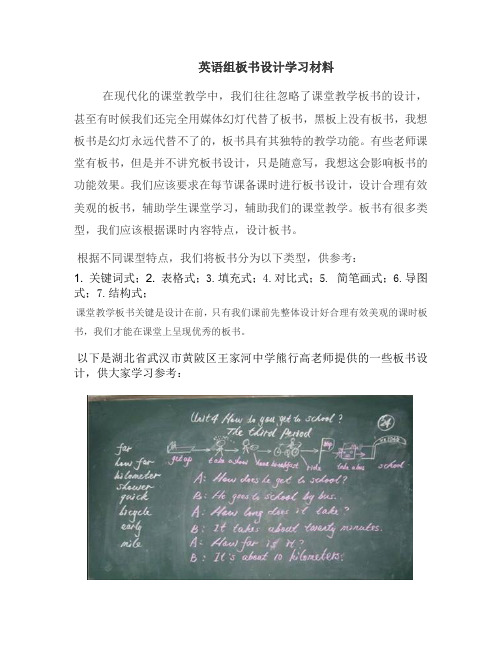 英语组板书设计学习材料
在现代化的课堂教学中，我们往往忽略了课堂教学板书的设计，
甚至有时候我们还完全用媒体幻灯代替了板书，黑板上没有板书，我想
板书是幻灯永远代替不了的，板书具有其独特的教学功能。有些老师课
堂有板书，但是并不讲究板书设计，只是随意写，我想这会影响板书的
功能效果。我们应该要求在每节课备课时进行板书设计，设计合理有效
美观的板书，辅助学生课堂学习，辅助我们的课堂教学。板书有很多类
型，我们应该根据课时内容特点，设计板书。
根据不同课型特点，我们将板书分为以下类型，供参考：
1. 关键词式；2. 表格式；3.填充式；4.对比式；5. 简笔画式；6.导图
式；7.结构式；
课堂教学板书关键是设计在前，只有我们课前先整体设计好合理有效美观的课时板
书，我们才能在课堂上呈现优秀的板书。
以下是湖北省武汉市黄陂区王家河中学熊行高老师提供的一些板书设
计，供大家学习参考：
Unit 4 How do you get to school?
The third Period
far
how far
kilometer
shower
quick
bicycle
early
mile
get up
take a shower
have breakfast
ride
take a bus
school
A: How does he get to school?
B: He goes to school by bus.
A: How long does it take?
B: It takes about twenty minutes.
A: How far is it?
B: It's about 10 kilometers.